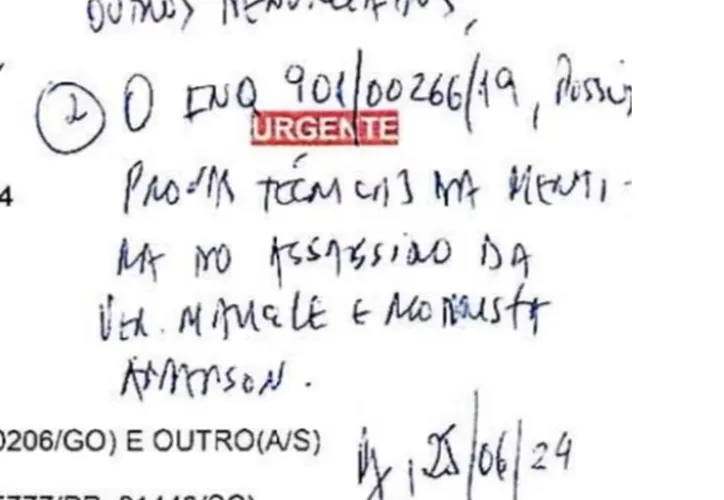 OUTROS DENUNCIADOS,
② O INQ 901/00266/19, POSSUI
URGENTE
PROVAS TÉCNICAS DA MENTI-
RA NO ASSASSINO DA
VER. MARIELLE E MOTORISTA
ANDERSON.
4
0206/GO) E OUTRO(A/S)
, 25/06/24